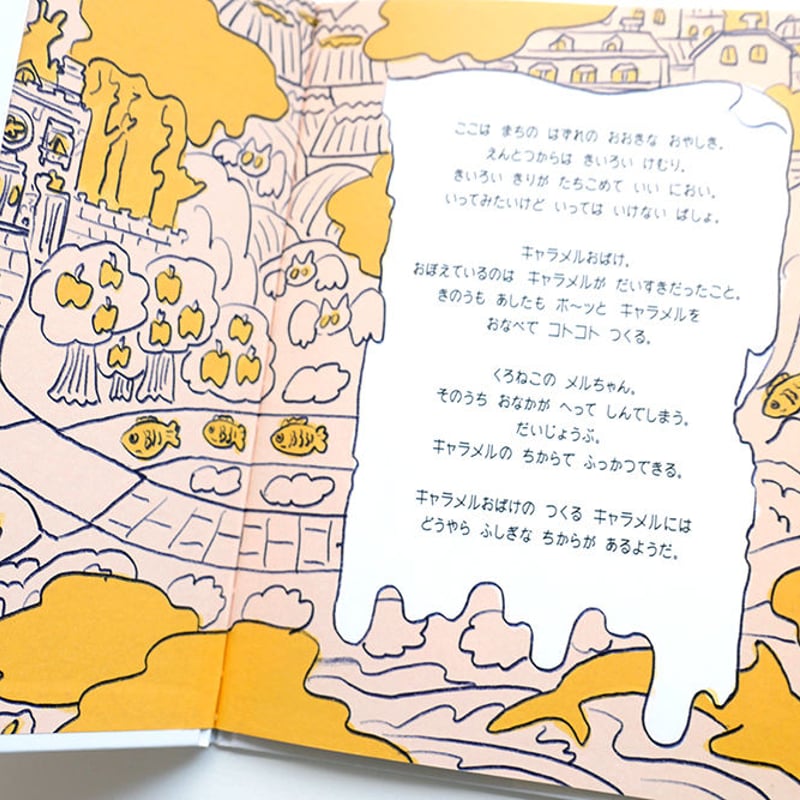 ここは まちの はずれの おおきな おやしき。
えんとつからは きいろい けむり。
きいろい きりが たちこめて いい におい。
いってみたいけど いっては いけない ばしょ。
キャラメルおばけ。
おぼえているのは キャラメルが だいすきだったこと。
きのうも あしたも ボ〜ッと キャラメルを
おなべで コトコト つくる。
くろねこの メルちゃん。
そのうち おなかが へって しんでしまう。
だいじょうぶ。
キャラメルの ちからで ふっかつできる。
キャラメルおばけの つくる キャラメルには
どうやら ふしぎな ちからが あるようだ。